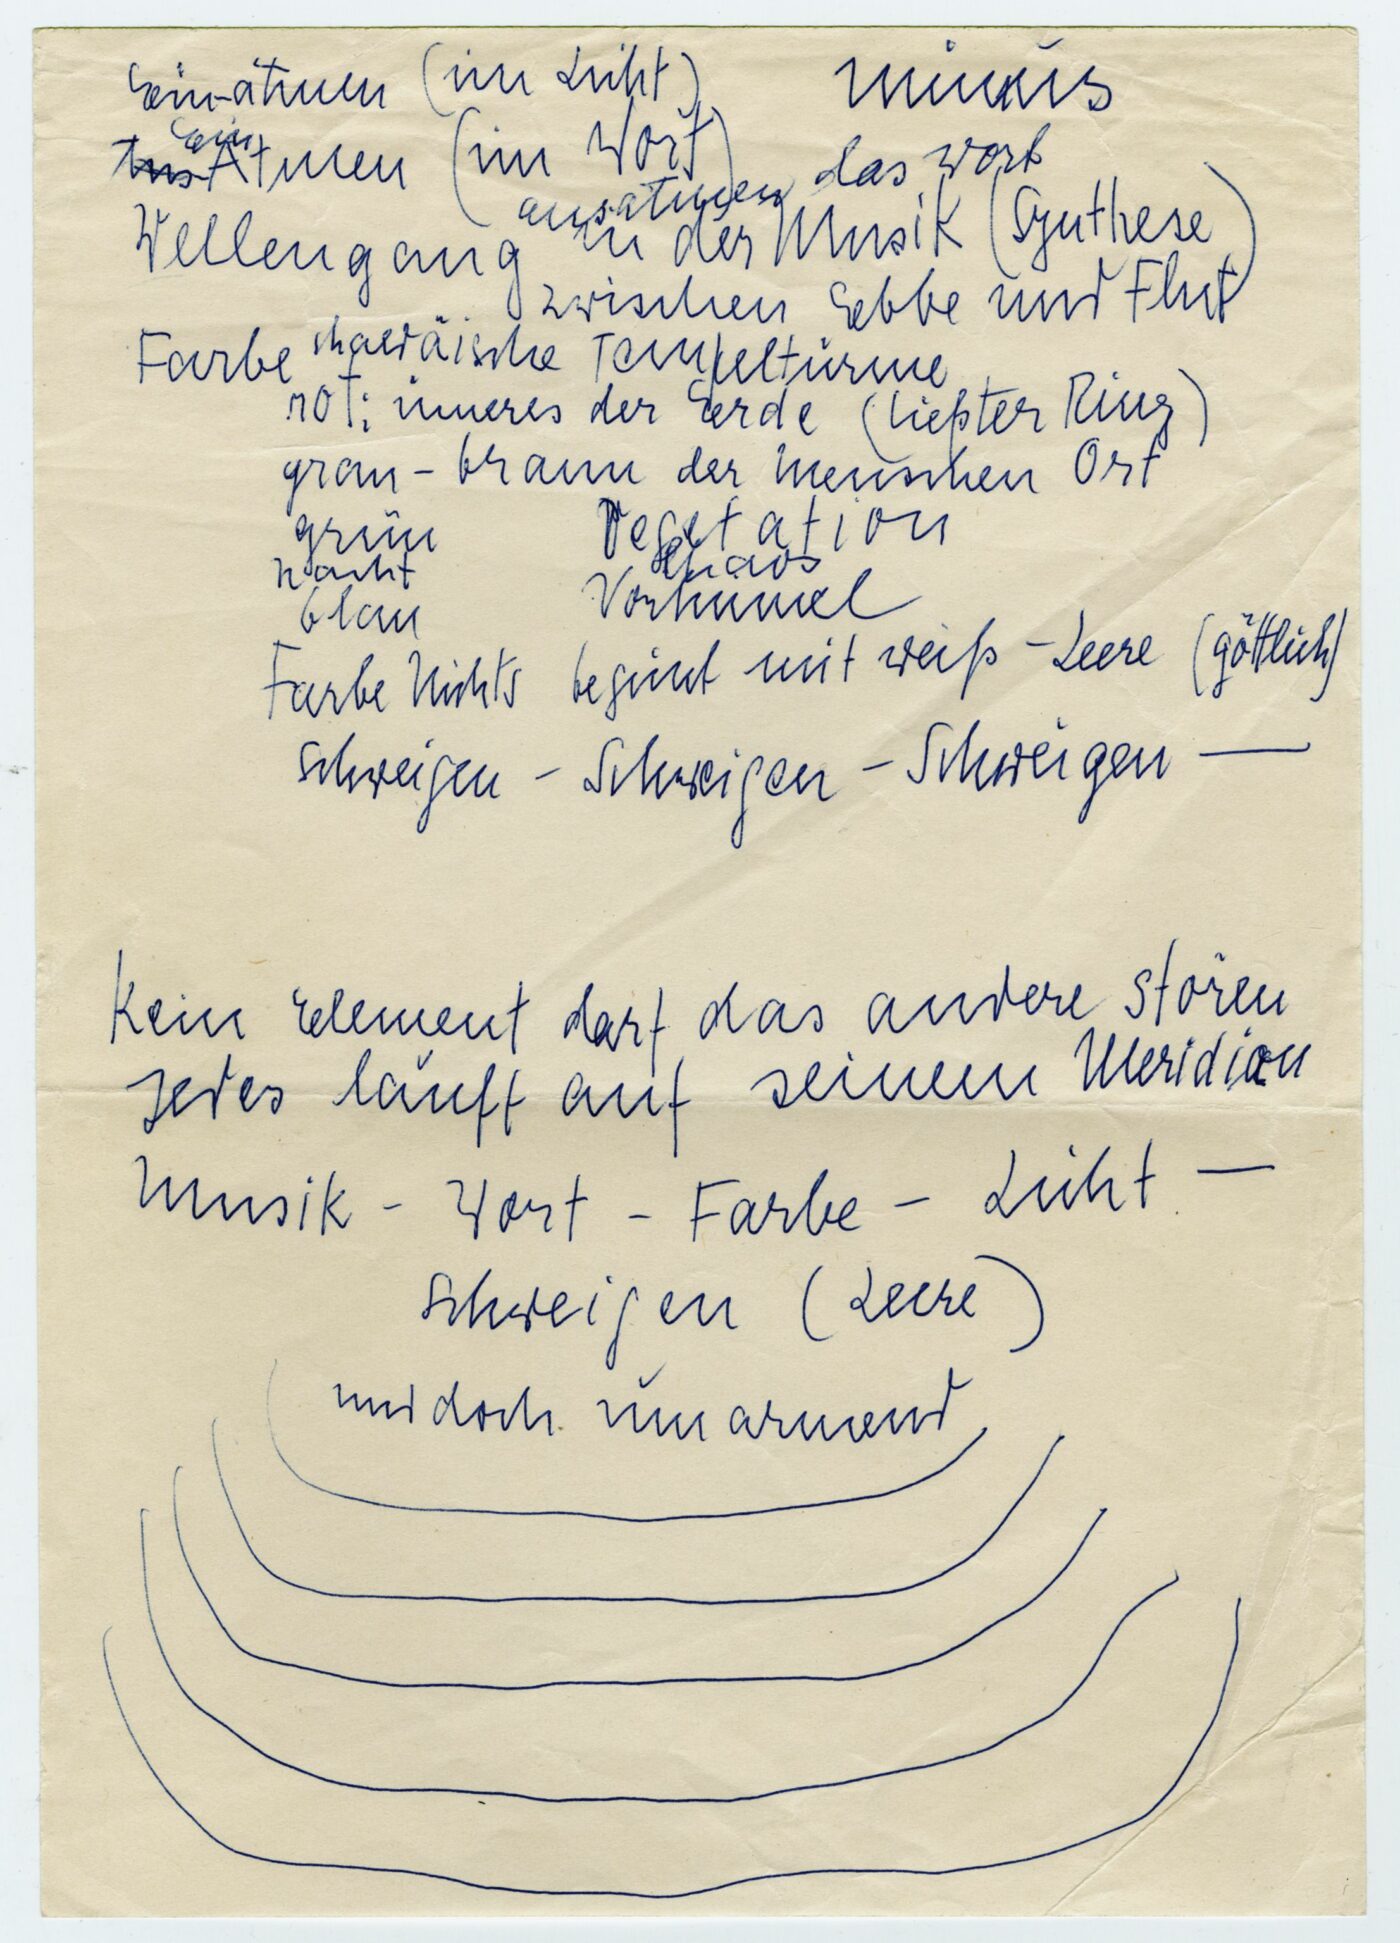 Einatmen (im Licht) Mimus
Ein Atmen (im Wort)
ausatmen das Wort
Wellengang in der Musik (Synthese)
zwischen Ebbe und Flut
Farbe chaldäische Tempeltürme
rot: inneres der Erde (tiefster Ring)
grau - braun der Menschen Ort
grün Vegetation
Nacht Chaos
blau Vorhimmel
Farbe Nichts beginnt mit weiß - Leere (göttlich)
Schweigen - Schweigen - Schweigen —
Kein Element darf das andere stören
Jedes läuft auf seinem Meridian
Musik - Wort - Farbe - Licht —
Schweigen (Leere)
und doch umarmend